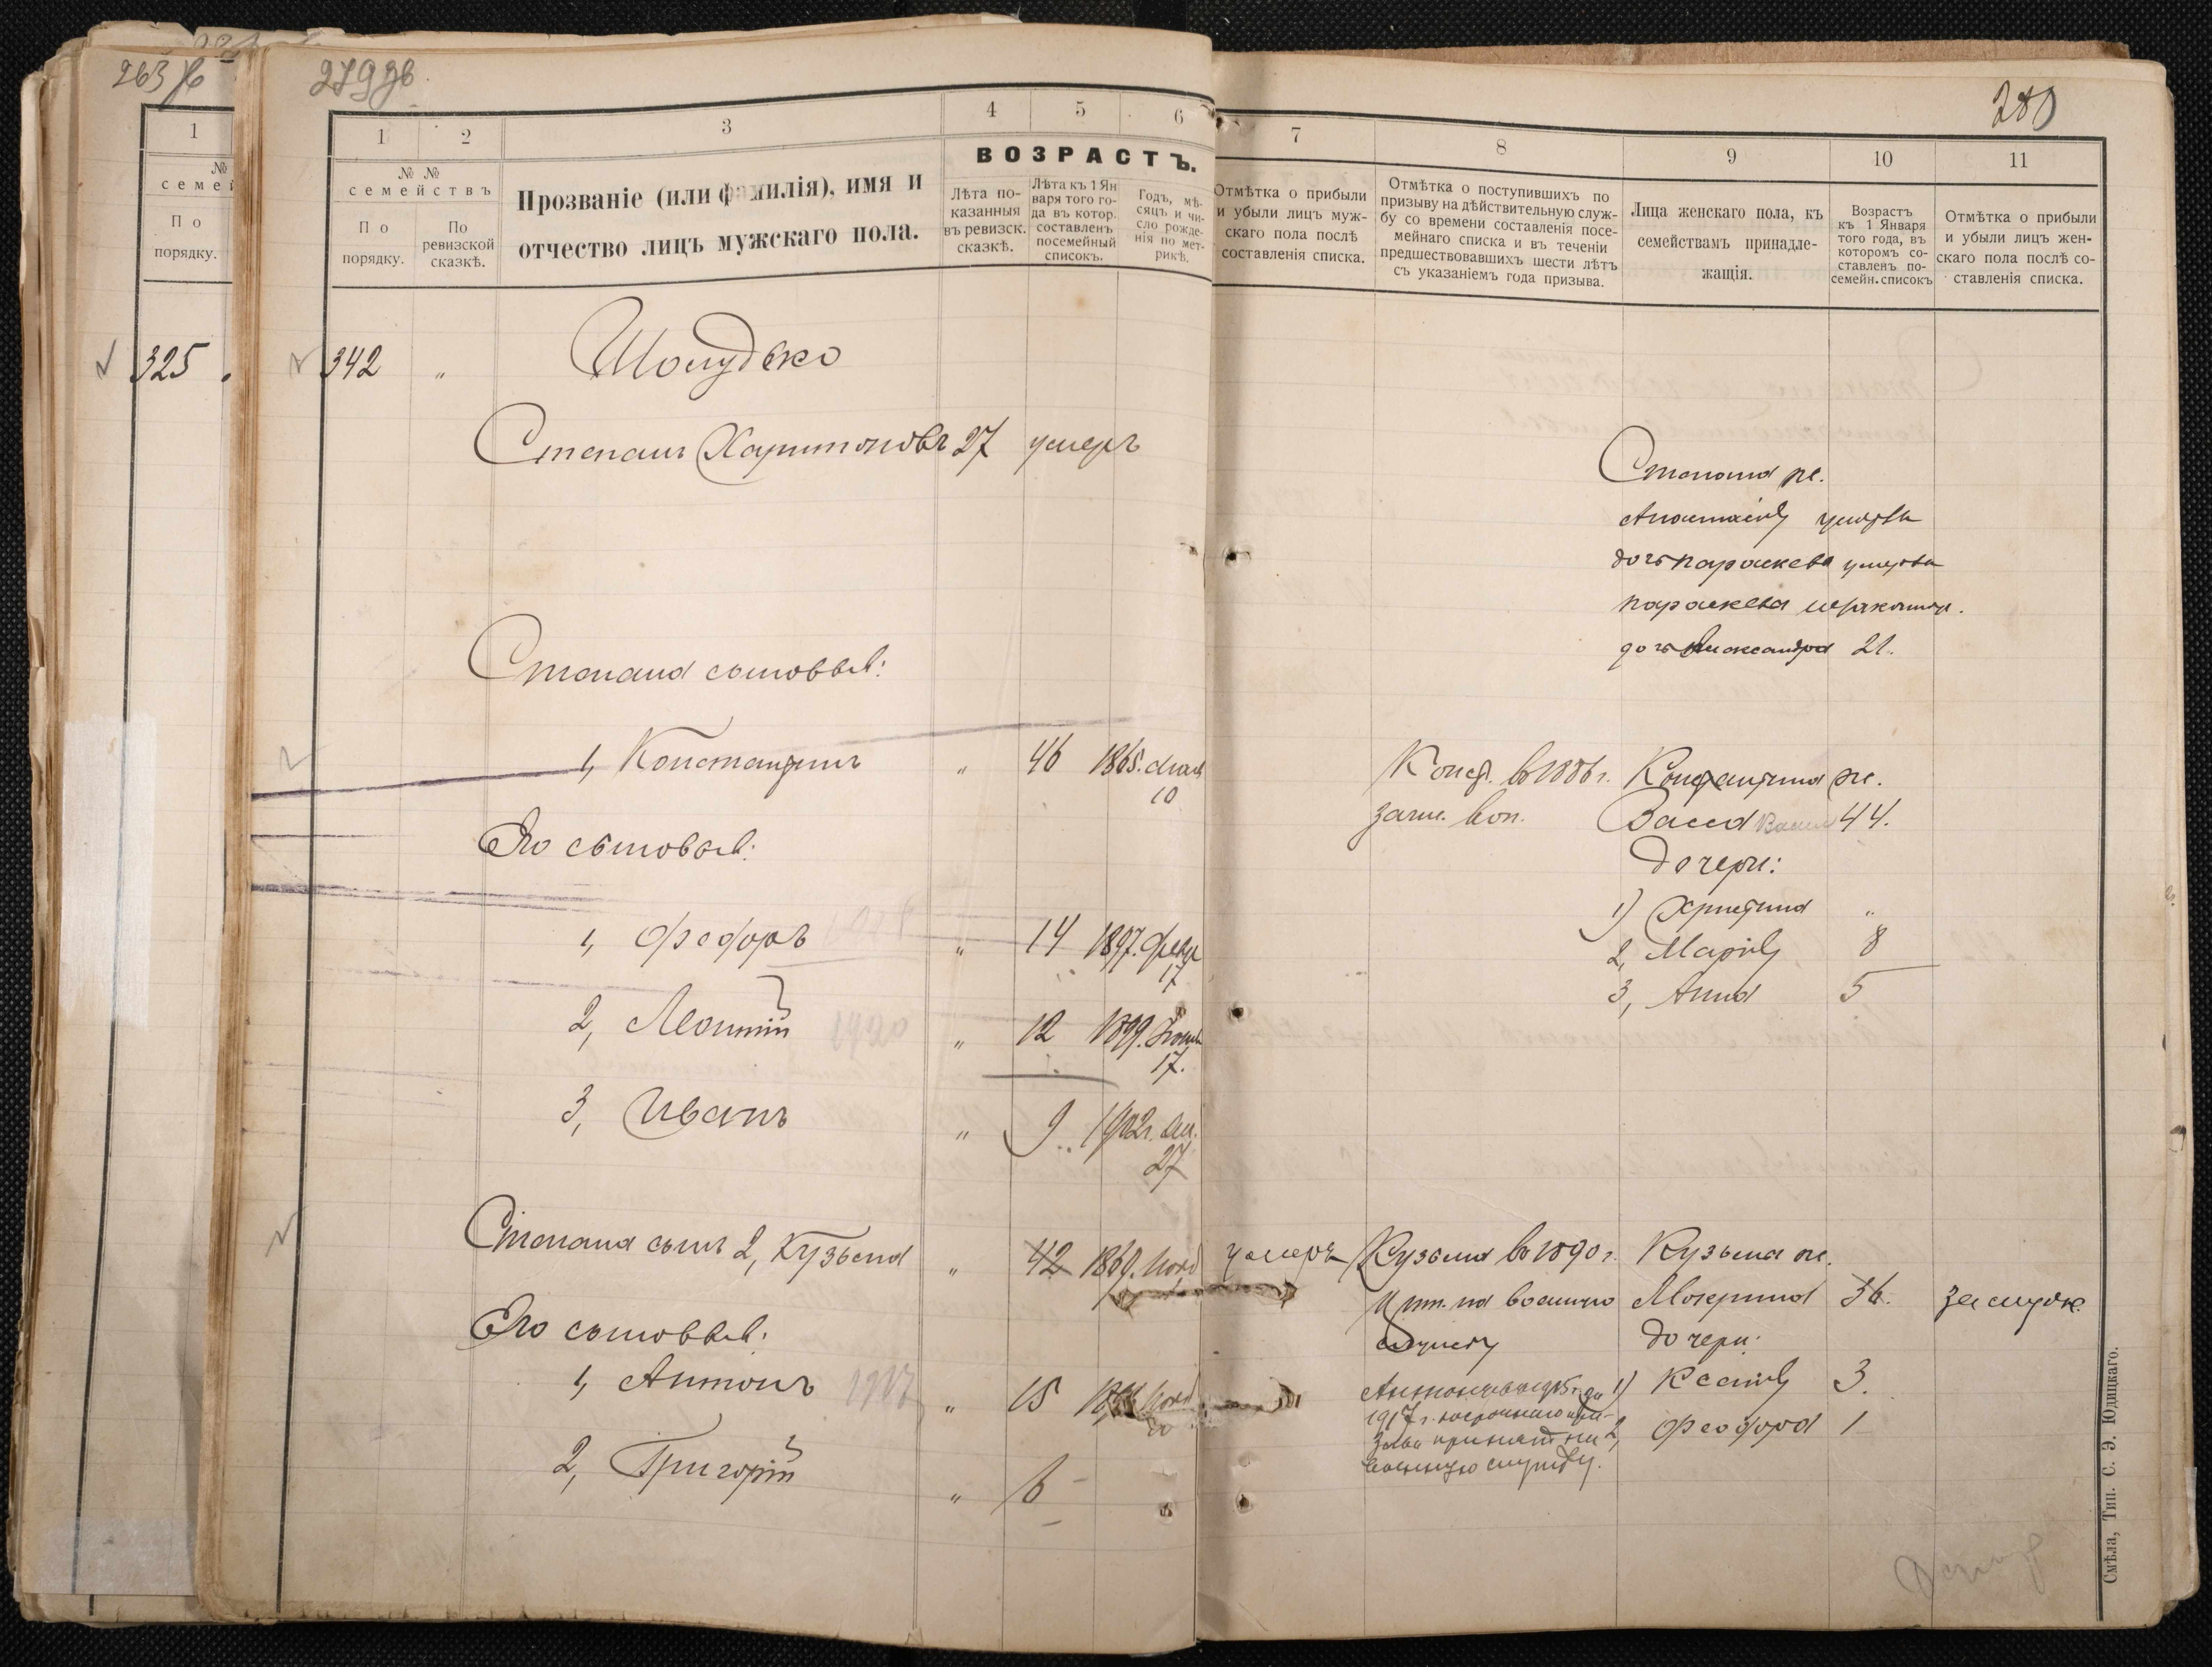 263
1
№
семей
По
порядку.
325
279
1
2
3
4
5
6
№ №
семействъ
По
порядку.
По
ревизской
сказкѣ.
Прозваніе (или фамилія), имя и
отчество лицъ мужскаго пола.
ВОЗРАСТЪ.
Лѣта по-
казанныя
въ ревизск.
сказкѣ.
Лѣта къ 1 Ян
варя того го-
да въ котор.
составленъ
посемейный
списокъ.
Годъ, мѣ-
сяцъ и чи-
сло рожде-
нія по мет-
рикѣ.
342 "
Шолудько
Степанъ Харитоновъ 27 умеръ
Степана сыновья:
1, Константинъ " 46 1865. мая
10
Его сыновья:
1, Феодоръ " 14 1897. февр
17
2, Леонтій 1920 " 12 1899. Іюня
17.
3, Иванъ " 9 1902г.
27
Степана сынъ 2, Кузьма " 42 1869. Нояб
Его сыновья:
1, Антонъ 1917 " 15 Нояб
2, Григорій " 6
280
7
8
9
10
11
Отмѣтка о прибыли
и убыли лицъ муж-
скаго пола послѣ
составленія списка.
Отмѣтка о поступившихъ по
призыву на дѣйствительную служ-
бу со времени составленія посе-
мейнаго списка и въ теченіи
предшествовавшихъ шести лѣтъ
съ указаніемъ года призыва.
Лица женскаго пола, къ
семействамъ принадле-
жащія.
Возрастъ
къ 1 Января
того года, въ
которомъ со-
ставленъ по-
семейн. списокъ
Отмѣтка о прибыли
и убыли лицъ жен-
скаго пола послѣ со-
ставленія списка.
Степана ж.
Анастасія умерла
дочь Параскева умерла
Параскева
дочь Александра 21.
Конст. въ 1886 г.
зачис. воп.
Константина ж.
Васса 44.
дочери:
1) Христина "
2, Марія 8
3, Анна 5
умеръ
Кузьма въ 1890 г.
прин. на военную
службу
Кузьма ж.
Мокрина 36. замуж.
дочери:
1) Ксенія 3.
2, Феодора 1
1917 г. досрочнаго при-
зыва принятъ на
военную службу.
Смѣла, Тип. С. Э. Юдицкаго.